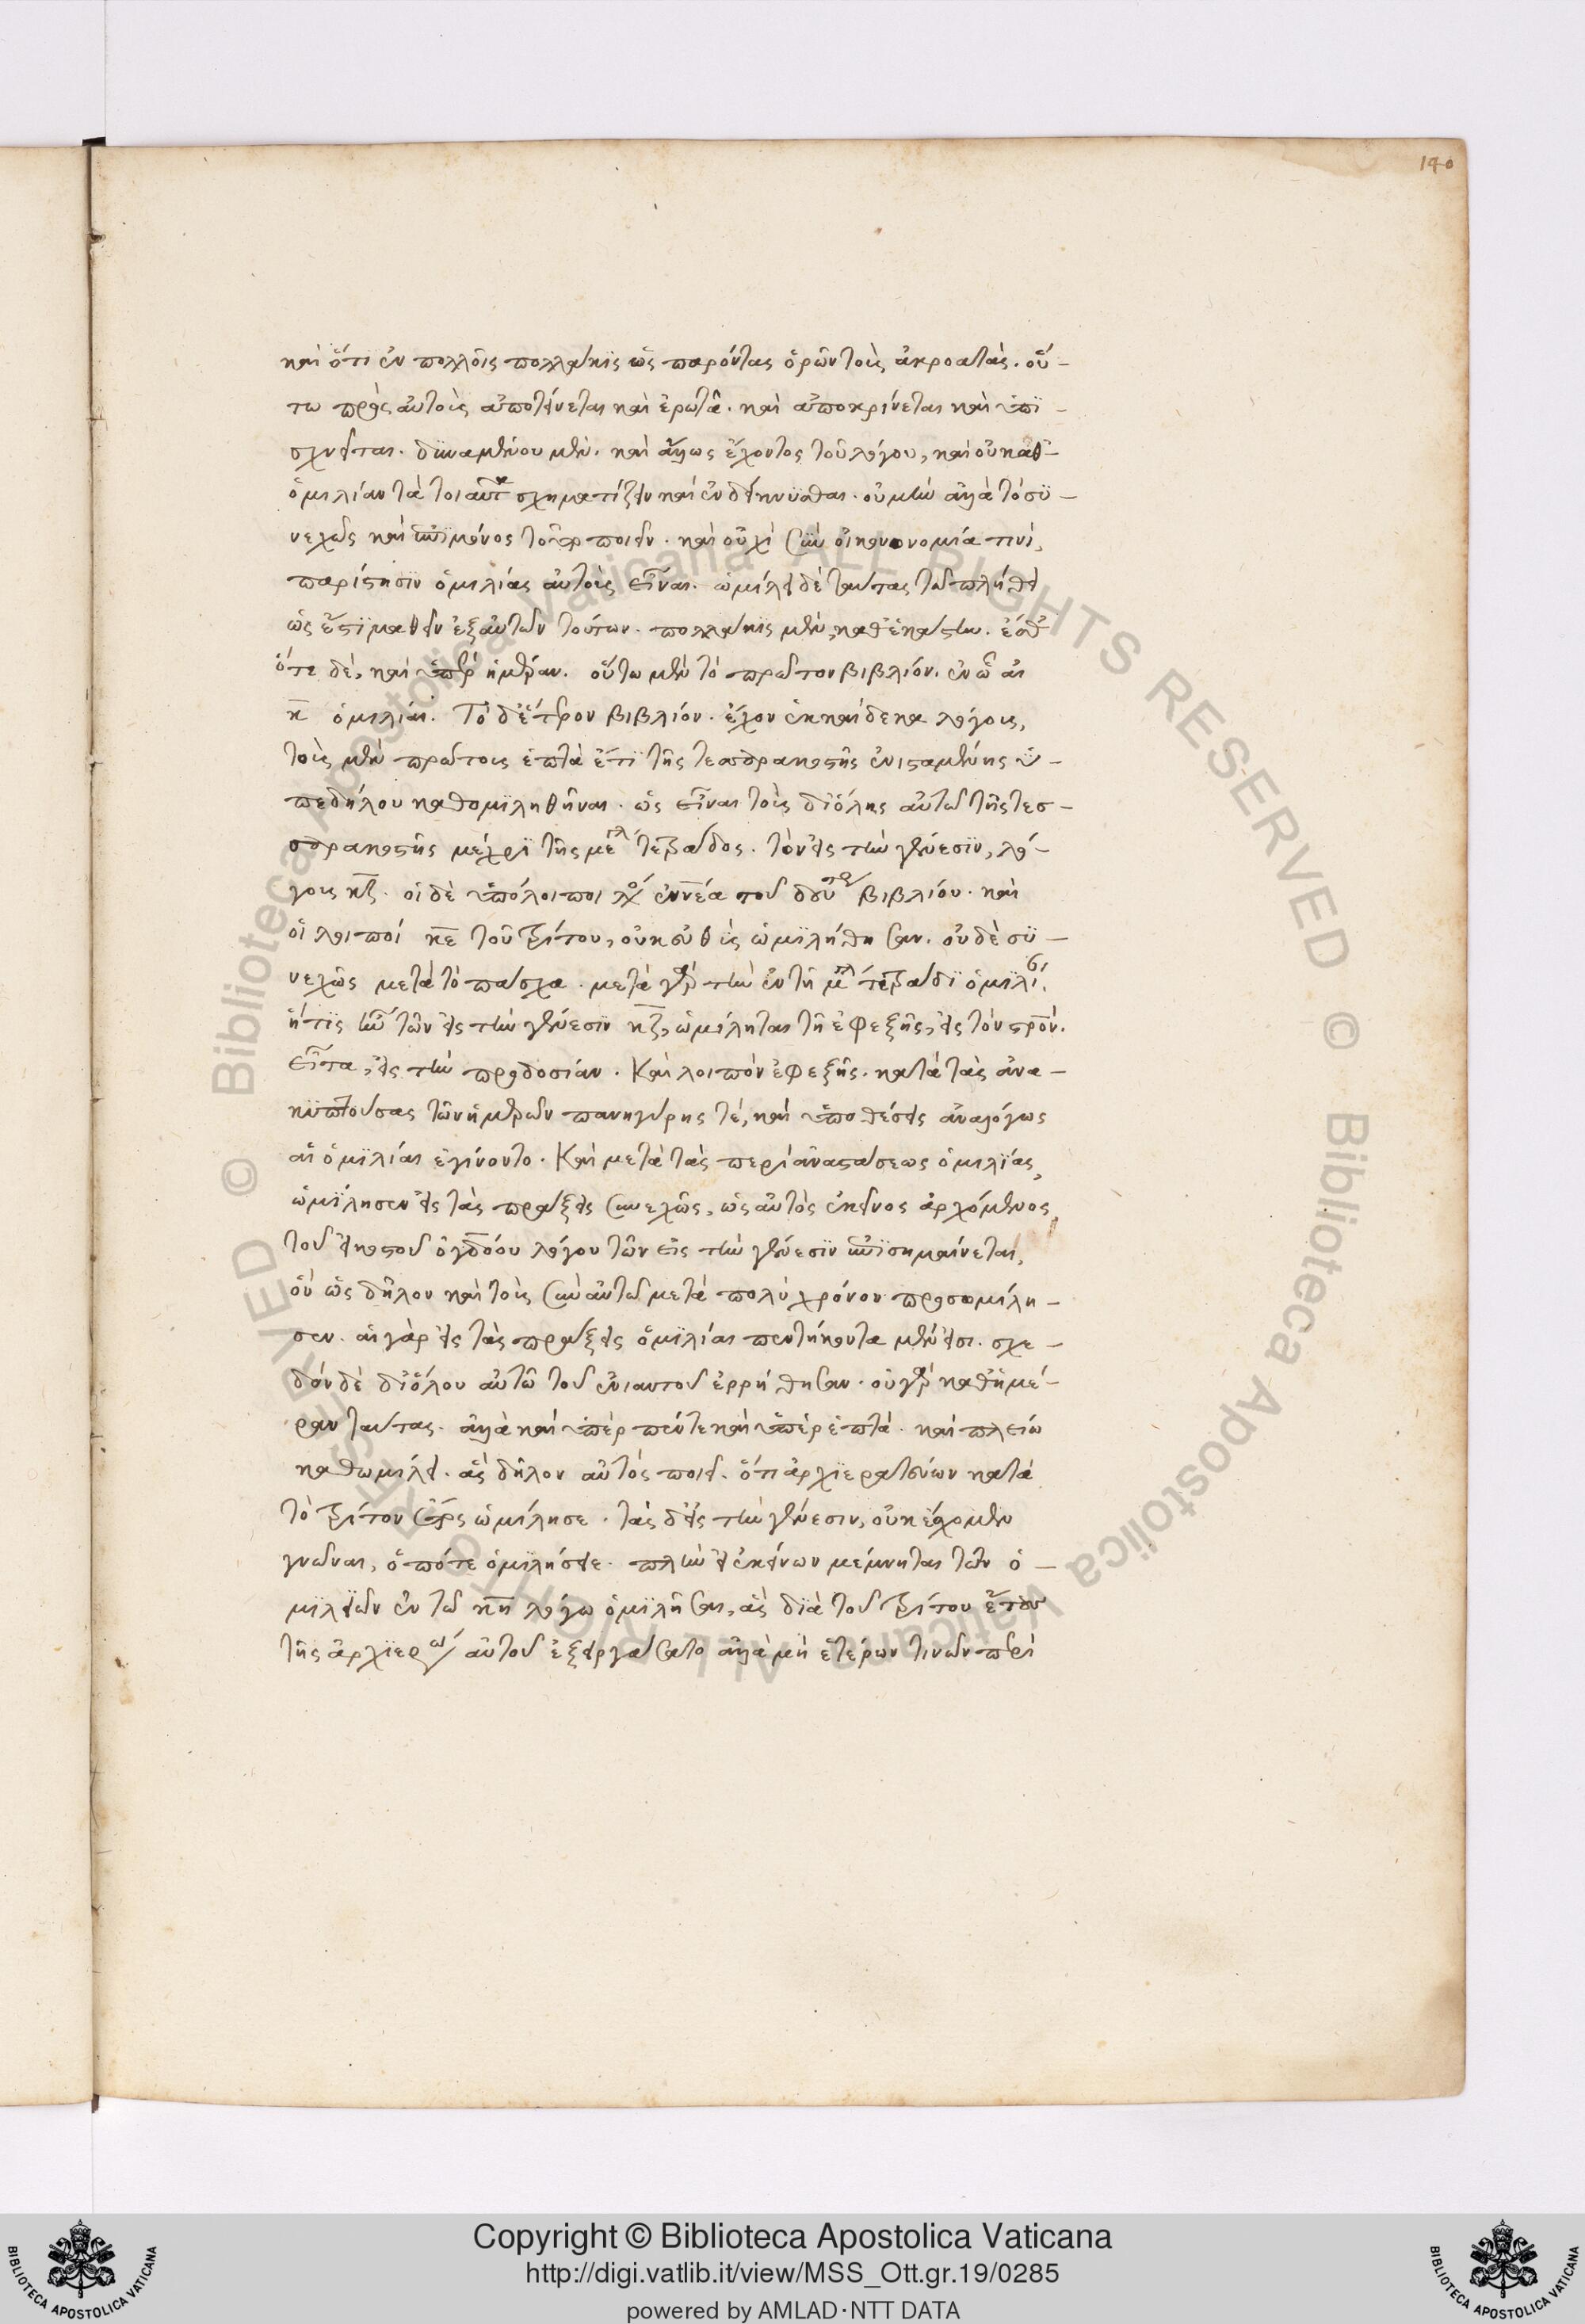 140
καὶ ὅτι ἐν πολλοῖς πολλάκις ὡς παρόντας ὁρῶν τοὺς ἀκροατὰς. οὕ-
τω πρὸς αὐτοὺς ἀποτείνεται καὶ ἐρωτᾶ. καὶ ἀποκρίνεται καὶ ὑπι-
σχνεῖται. δυναμένου μὲν. καὶ ἄλλως ἔχοντος τοῦ λόγου, καὶ οὐ καθ-
ὁμιλίαν τὰ τοιαῦτα σχηματίζειν καὶ ἐνδείκνυσθαι. οὐ μὴν ἀλλὰ τὸ συ-
νεχῶς καὶ ἐπιμόνος τοῦτο ποιεῖν. καὶ οὐχὶ σὺν οἰκονομία τινὶ,
παρίστησιν ὁμιλίας αὐτοὺς εἶναι. ὡμίλει δὲ ταύτας τῶ πλήθει
ὡς ἔστι μαθεῖν ἐξ αὐτῶν τούτων. πολλάκις μὲν, καθ ἑκάστην. ἔσθ
ὅτε δὲ, καὶ ὑπὲρ ἡμέραν. οὕτω μὲν τὸ πρῶτον βιβλίον. ἐν ὧ αἱ
κ ὁμιλίαι. Τὸ δεύτερον βιβλίον. ἔχον ἑκκαίδεκα λόγους,
τοὺς μὲν πρώτους ἑπτὰ ἔτι τῆς τεσσαρακοστῆς ἐνισταμένης ὑ-
πεδήλου καθομιληθῆναι. ὡς εἶναι τοὺς δι ὅλης αὐτῶ τῆς τεσ-
σαρακοστῆς μέχρι τῆς μεγάλης τετράδος. τὸν εἰς τὴν γένεσιν, λό-
γους κζ. οἱ δὲ ὑπόλοιποι λόγοι ἐννέα τοῦ δευτέρου βιβλίου. καὶ
οἱ λοιποί κε τοῦ τρίτου, οὐκ εὐθὺς ὡμιλήθησαν. οὐδὲ συ-
νεχῶς μετὰ τὸ πάσχα. μετὰ γὰρ τὴν ἐν τῆ μεγάλη τετράδι ὁμιλίαν.
ἥτις ἦν τῶν εἰς τὴν γένεσιν κζ, ὡμίληται τῆ ἐφεξῆς, εἰς τὸν σρον.
εἶτα, εἰς τὴν προδοσίαν. Καὶ λοιπὸν ἐφεξῆς. κατὰ τὰς ἀνα-
κυπτούσας τῶν ἡμερῶν πανηγύρης τὲ, καὶ ὑποθέσεις ἀναλόγως
αἱ ὁμιλίαι ἐγίνοντο. Καὶ μετὰ τὰς περὶ ἀναστάσεως ὁμιλίας,
ὡμίλησεν εἰς τὰς πράξεις συνεχῶς, ὡς αὐτὸς ἐκεῖνος ἀρχόμενος
τοῦ εἰκοστοῦ ὀγδόου λόγου τῶν εἰς τὴν γένεσιν ἐπισημαίνεται,
ὃν ὡς δῆλον καὶ τοὺς σὺν αὐτῶ μετὰ πολὺ χρόνον προσωμίλη-
σεν. αἱ γὰρ εἰς τὰς πράξεις ὁμιλίαι πεντήκοντα μέν εἰσι. σχε-
δὸν δὲ δι ὅλου αὐτῶ τοῦ ἐνιαυτοῦ ἐρρήθησαν. οὐ γὰρ καθ ἡμέ-
ραν ταύτας. ἀλλὰ καὶ ὑπὲρ πέντε καὶ ὑπὲρ ἑπτά. καὶ πλείω
καθωμίλει. ἃς δῆλον αὐτός ποιεῖ. ὅτι ἀρχιερατεύων κατὰ
τὸ τρίτον ἔτος ὡμίλησε. τὰς δ εἰς τὴν γένεσιν, οὐκ ἔχομεν
γνῶναι, ὁπότε ὁμιλήσειε. πλὴν εἰ ἐκείνων μέμνηται τῶν ὁ-
μιλιῶν ἐν τῶ κη λόγω ὁμιλῆσαι, ἃς διὰ τοῦ τρίτου ἔτους
τῆς ἀρχιερω αὐτοῦ ἐξειργάσατο ἀλλὰ μὴ ἑτέρων τινῶν περὶ
Copyright © Biblioteca Apostolica Vaticana
http://digi.vatlib.it/view/MSS_Ott.gr.19/0285
powered by AMLAD·NTT DATA